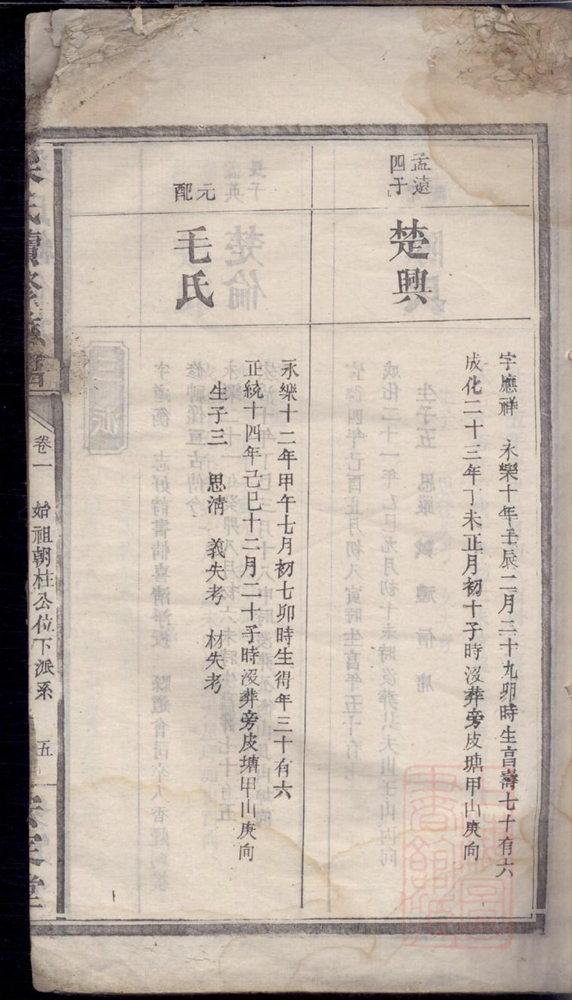 孟遠
四子
楚興
字應祥 永樂十年壬辰二月二十九卯時生享壽七十有六
成化二十三年丁未正月初十子時沒葬旁皮塘甲山庚向
元配
毛氏
永樂十二年甲午七月初七卯時生得年三十有六
正統十四年己巳十二月二十子時沒葬旁皮塘甲山庚向
生子三 思清 義失考 材失考
氏續修族譜
卷一
始祖朝柱公位下派系
五
堂